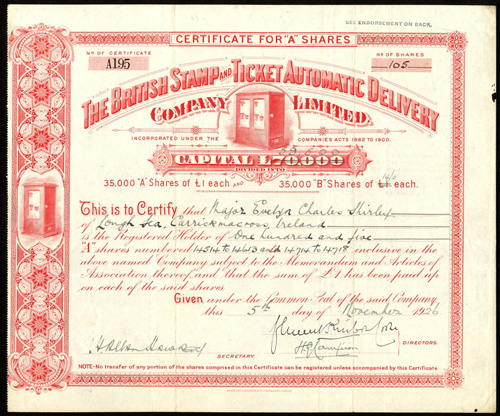 SEE ENDORSEMENT ON BACK.
CERTIFICATE FOR "A" SHARES
No OF CERTIFICATE
A195
No OF SHARES
105
THE BRITISH STAMP AND TICKET AUTOMATIC DELIVERY
COMPANY LIMITED.
INCORPORATED UNDER THE COMPANIES ACTS 1862 TO 1900.
CAPITAL £70,000
DIVIDED INTO
35,000 "A" Shares of £1 each AND 35,000 "B" Shares of £1 each.
This is to Certify that Major Evelyn Charles Shirley
of Lough Fea, Carrickmacross, Ireland
is the Registered Holder of One hundred and five
"A" shares numbered 14514 to 14613 and 14714 to 14718 inclusive in the
above named Company subject to the Memorandum and Articles of
Association thereof, and that the sum of £1 has been paid up
on each of the said shares.
Given under the Common Seal of the said Company,
this 5th day of November 1926
DIRECTORS.
SECRETARY.
NOTE:-No transfer of any portion of the shares comprised in this Certificate can be registered unless accompanied by this Certificate.